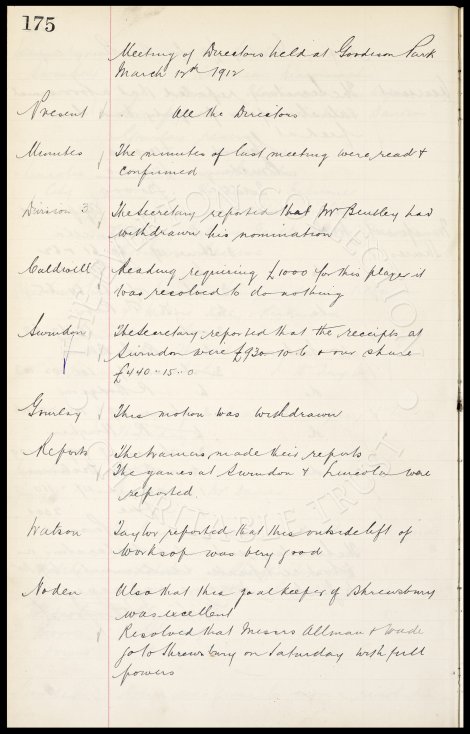 175
Meeting of Directors held at Goodison Park
March 12th 1912
Present All the Directors
Minutes The minutes of last meeting were read &
confirmed
Division 3 The Secretary reported that Mr Bentley had
withdrawn his nomination
Caldwell Reading requiring £1000 for this player it
was resolved to do nothing
Swindon The Secretary reported that the receipts at
Swindon were £930-10-6 & our share
£440-15-0
Gourlay This motion was withdrawn
Reports The trainers made their reports
The games at Swindon & Lincoln were
reported.
Watson Taylor reported that this outside left of
Worksop was very good
Noden Also that this goalkeeper of Shrewsbury
was excellent
Resolved that Messrs Allman & Wade
go to Shrewsbury on Saturday with full
powers
CHARITABLE TRUST